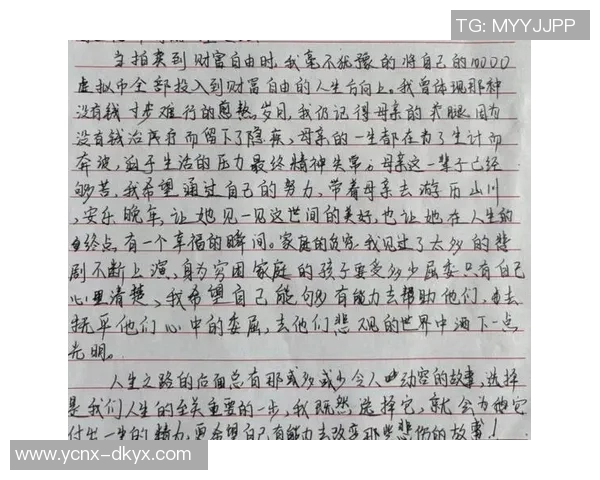 TG: MYYJJPP
当拍卖到财富自由时,我毫不犹豫的将自己的10000
虚拟币全部投入到财富自由的人生方向上。我曾体现那种
没有钱寸步难行的煎熬岁月,我仍记得母亲的 腿因为
没有钱治疗而留下了隐疾、母亲的一生都在为了生计而
奔波,迫于生活的压力最终精神失常。母亲这一辈子已经
够苦,我希望通过自己的努力,带着母亲去游历山川
,安乐晚年,让她见一见这世间的美好,也让她在人生的
终点有一个幸福的瞬间。家庭的贫穷,我见过了太多的悲
剧不断上演,身为穷困家庭的孩子要受多少屈委只有自己
心里清楚、我希望自己能够有能力去帮助他们,去
抚平他们心中的委屈,去他们悲观的世界中洒下一点
光明。
人生之路的后面总有那或多或少令人动容的故事,选择
是我们人生的至关重要的一步,我既然选择它,就会为他
付出一生的精力,更希望自己有能力去改变那些悲伤的故事!
www.ycnx-dkyx.com